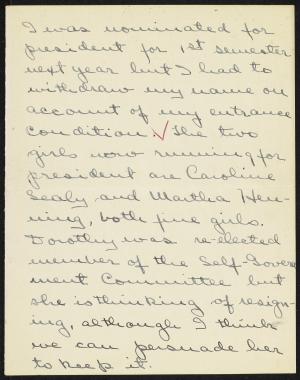 I was nominated for
president for 1st semester
next year but I had to
withdraw my name on
account of my entrance
condition. The two
girls now running for
president are Caroline
Sealy and Martha Hen-
ning, both fine girls.
Dorothy was re-elected
member of the Self-Govern
ment Committee but
she is thinking of resign-
ing, although I think
we can persuade her
to keep it.